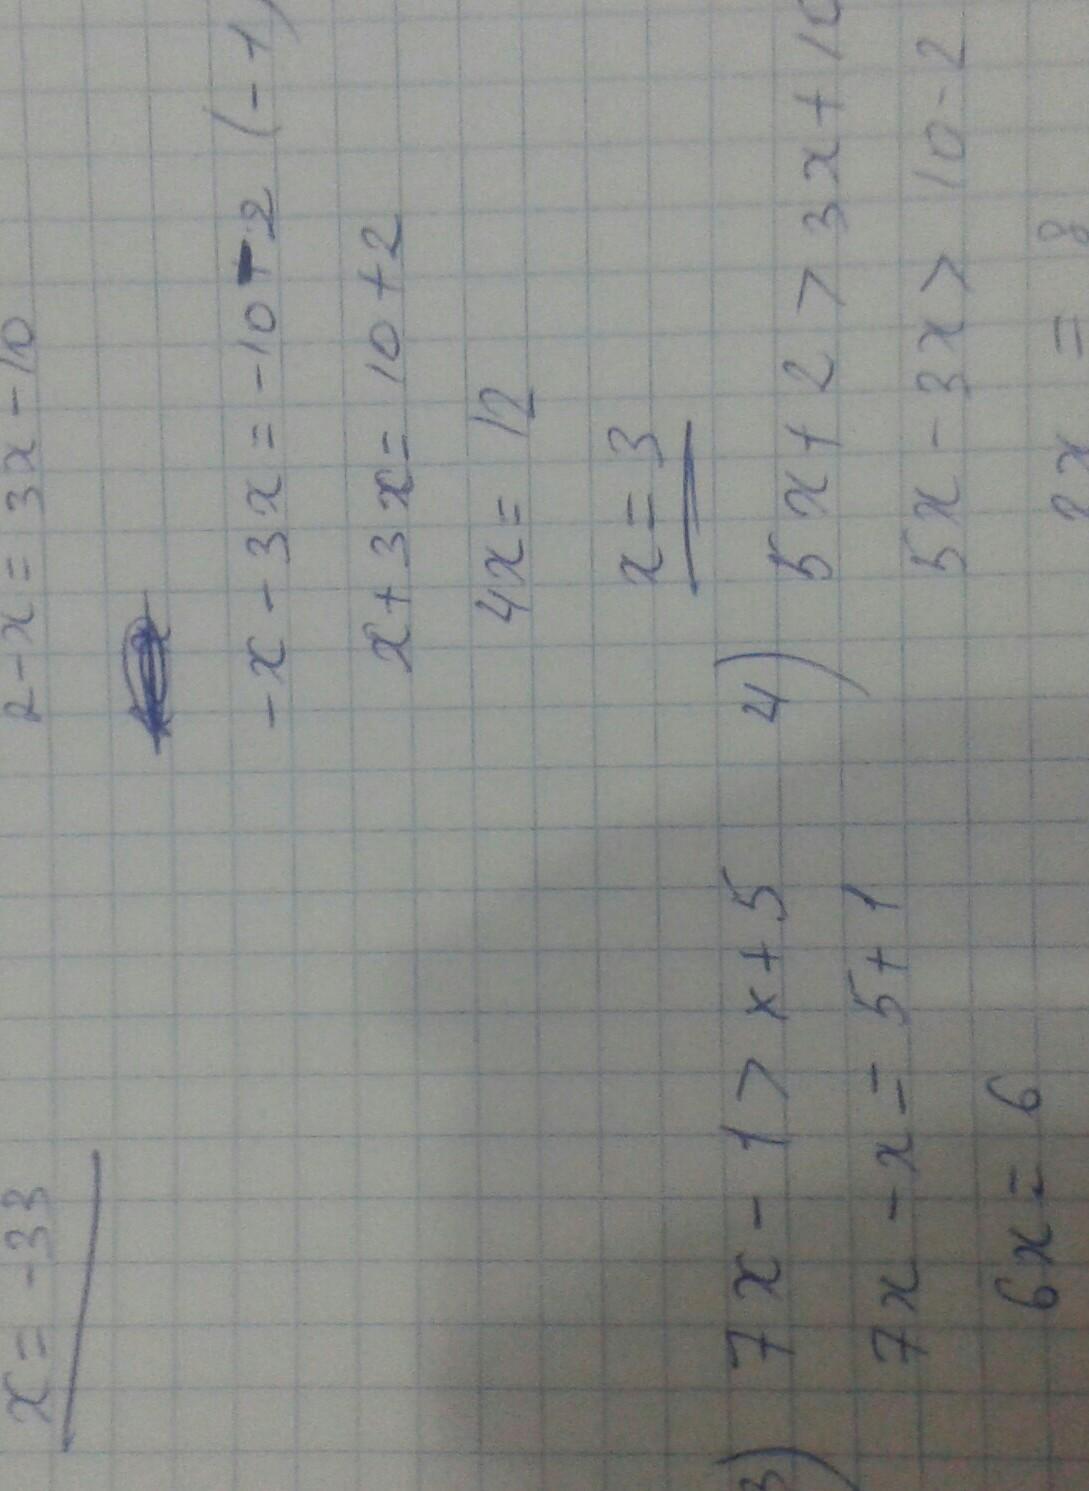 x = -33
2-x = 3x-10
-x-3x = -10-2 (-1)
x+3x = 10+2
4x = 12
x = 3
3)
7x - 1 > x+5
7x - x = 5+1
6x = 6
4)
5x+2 > 3x+10
5x-3x > 10-2
2x = 8